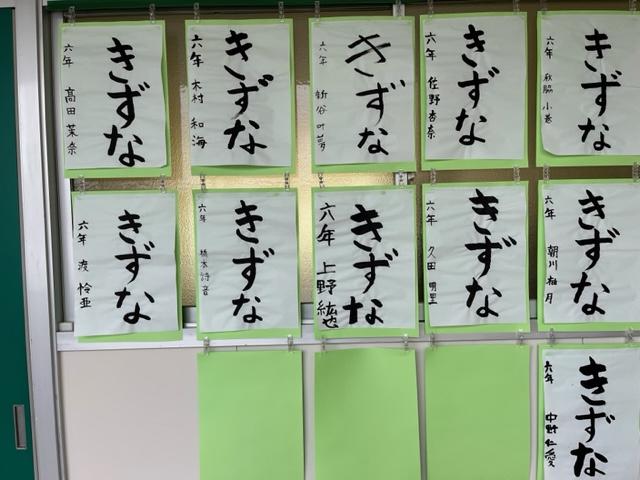 きずな
六年 高田 菜奈
きずな
六年 木村 和海
きずな
六年 新谷 叶夢
きずな
六年 佐野杏奈
きずな
六年 秋脇 小巻
きずな
六年 渡 怜亜
きずな
六年 橋本詩音
きずな
六年 上野 紘也
きずな
六年 久田 明里
きずな
六年 朝川 柚月
きずな
六年 中野 仁愛